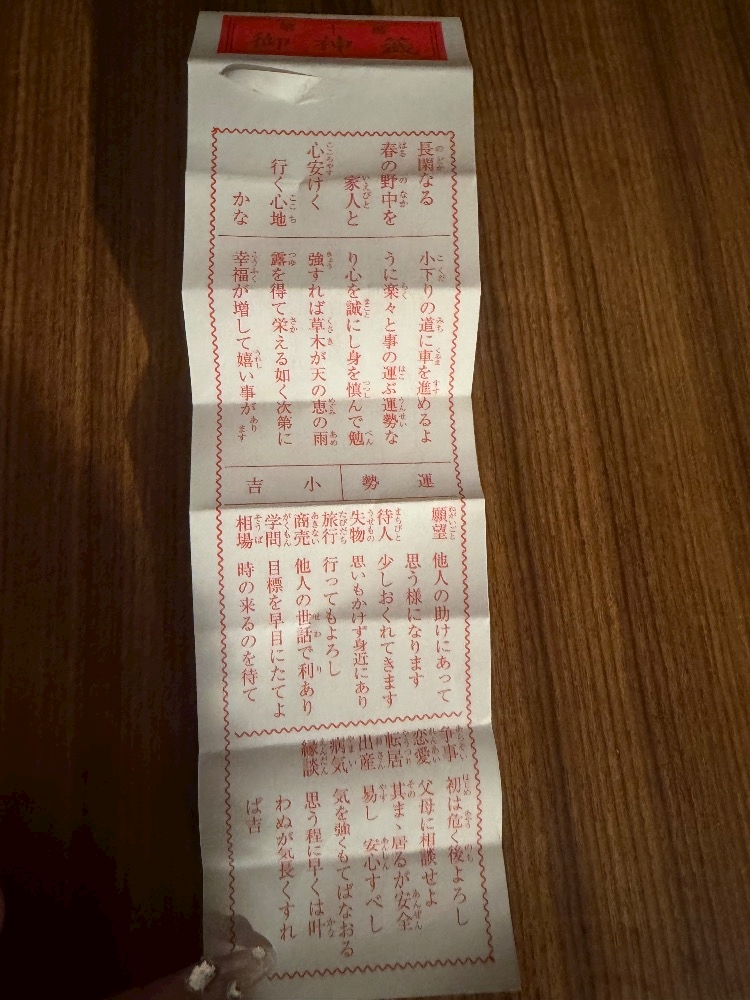 御神籤
長閑なる
春の野中を
家人と
心安けく
行く心地
かな
小下りの道に車を進めるよ
うに楽々と事の運ぶ運勢な
り心を誠にし身を慎んで勉
強すれば草木が天の恵の雨
露を得て栄える如く次第に
幸福が増して嬉い事があります
運勢 小吉
願望 他人の助けにあって
思う様になります
待人 少しおくれてきます
失物 思いもかけず身近にあり
旅行 行ってもよろし
商売 他人の世話で利あり
学問 目標を早目にたてよ
相場 時の来るのを待て
争事 初は危く後よろし
恋愛 父母に相談せよ
転居 其まゝ居るが安全
出産 易し 安心すべし
病気 気を強くもてばなおる
縁談 思う程に早くは叶
わぬが気長くすれ
ば吉